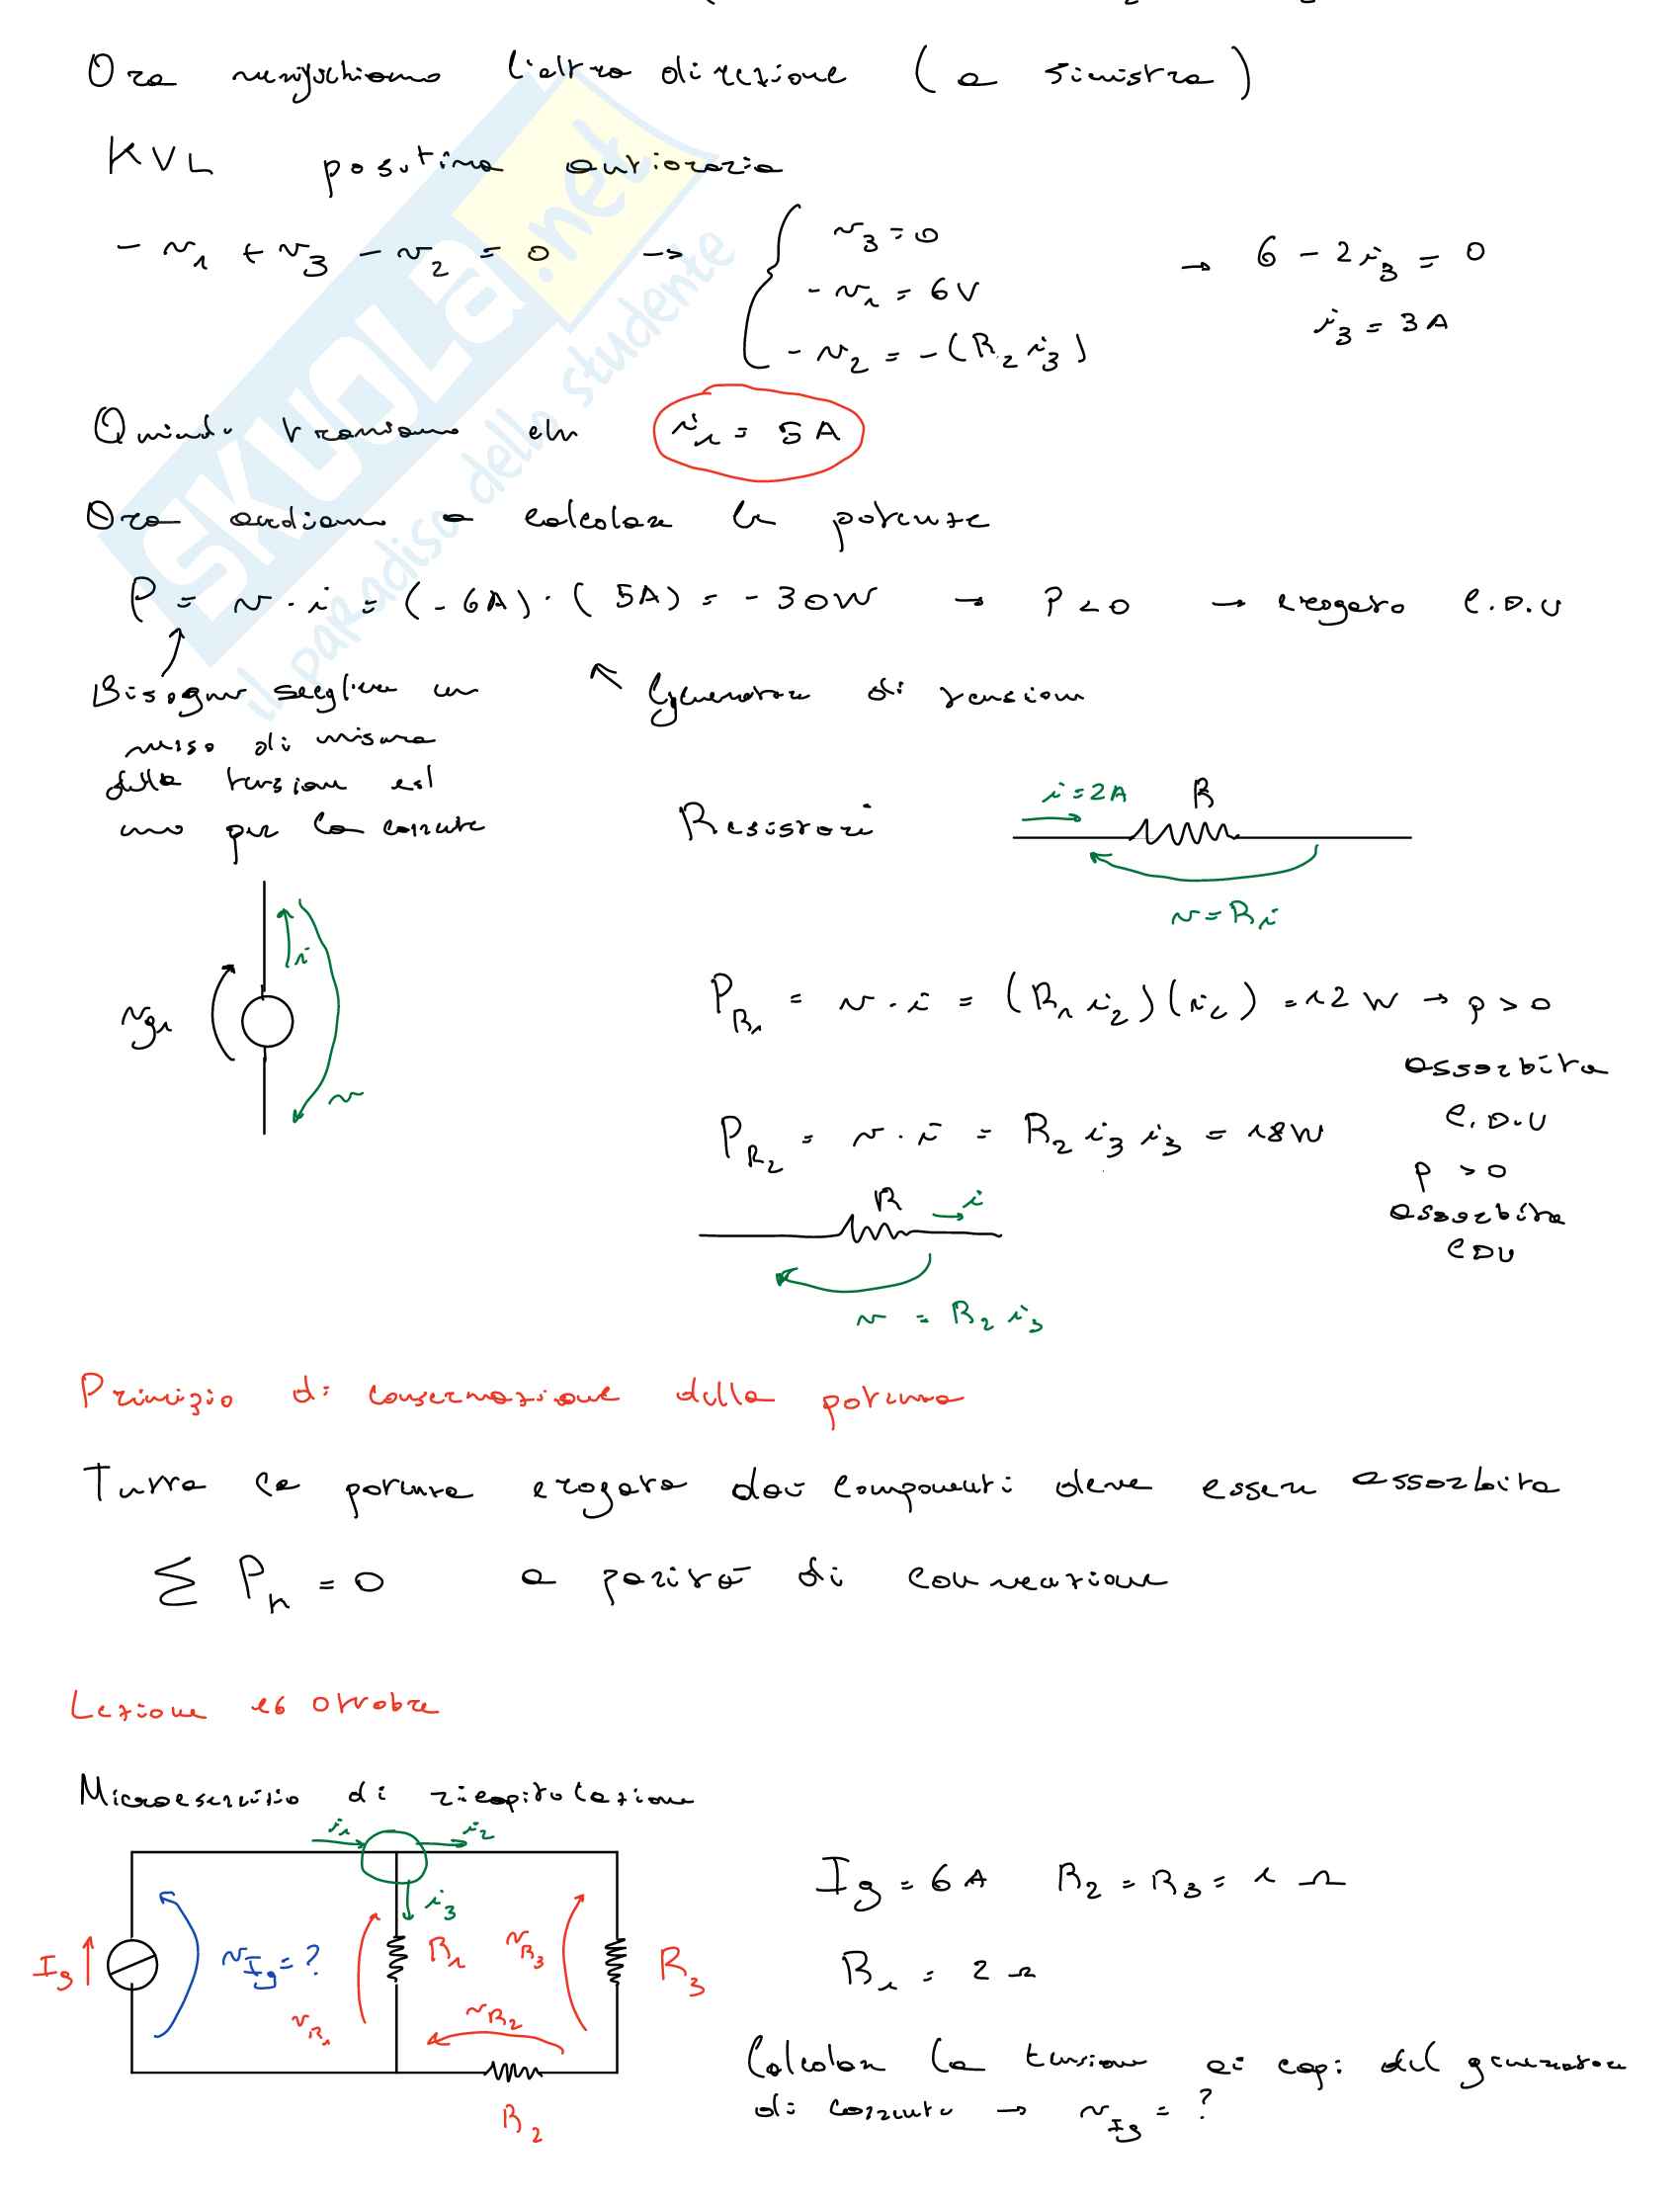 Ora verifichiamo l'altra direzione (a sinistra)
KVL positiva antioraria
- v1 + v3 - v2 = 0 → { v3 = 0
- v1 = 6V
- v2 = -(R2 i3)
→ 6 - 2i3 = 0
i3 = 3A
Quindi troviamo che i1 = 5A
Ora andiamo a calcolare le potenze
P = v · i = (-6A) · (5A) = -30W → P < 0 → erogato C.D.U
Bisogna scegliere un
verso di misura
della tensione ed
uno per la corrente
↖ Generatore di tensione
Resistori
i = 2A
R
v = Ri
vg1
i
v
PR1 = v · i = (R1 i2)(i2) = 12 W → p > 0
assorbita
C.D.U
PR2 = v · i = R2 i3 i3 = 18W
p > 0
assorbita
CDU
R
i
v = R2 i3
Principio di conservazione della potenza
Tutta la potenza erogata dai componenti deve essere assorbita
Σ Pn = 0 a parità di convenzione
Lezione 16 ottobre
Microesercizio di ricapitolazione
i1
i2
i3
Ig
vIg = ?
vR1
R1
vR3
R3
vR2
R2
Ig = 6A R2 = R3 = 1 Ω
R1 = 2 Ω
Calcolare la tensione ai capi del generatore
di corrente → vIg = ?
SKUOLA.net
il paradiso dello studente